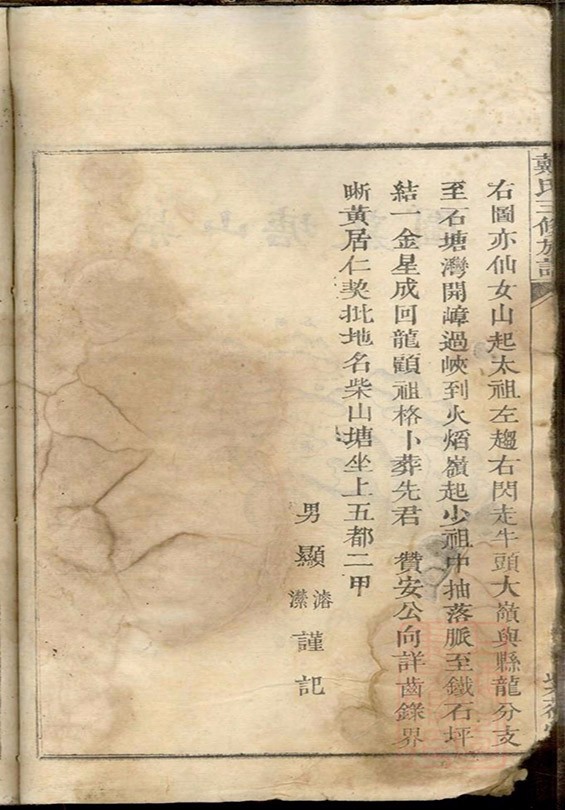 戴氏三修族譜
右圖亦仙女山起太祖左趨右閃走牛頭大嶺與縣龍分支
至石塘灣開嶂過峽到火熖嶺起少祖中抽落脈至鐵石坪
結一金星成回龍顧祖格卜葬先君 贊安公向詳齒錄界
晰黃居仁契批地名柴山塘坐上五都二甲
男顯濬
潔謹記